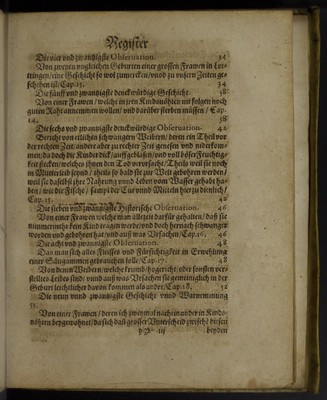 Register
Die vier vnd zwantzigste Obseruation. 32
Von zweyen vngleichen Geburten einer grossen Frawen in Lot-
tingen/eine Geschicht so wol zumercken/vnd zu vnsern Zeiten ge-
schehen ist/Cap.13. 34
Die fünff vnd zwantzigste denckwürdige Geschicht. 38
Von einer Frawen/ welche in jren Kindsnöhten nit folgen noch
guten Raht annemmen wollen/ vnd darüber sterben müssen / Cap.
14. 38
Die sechs vnd zwantzigste denckwürdige Obseruation. 42
Bericht von etlichen schwangern Weibern/ deren ein Theil vor
der rechten Zeit/ andere aber zu rechter Zeit genesen vnd niderkom-
men/da doch die Kinder dick/ auffgeblasen/vnd voll böser Feuchtig-
keit stecken/welches jhnen den Tod verursacht/Theils weil sie noch
in Mutterleib seynd / theils so bald sie zur Welt gebohren werden/
weil sie daselbst jhre Nahrung vnnd Leben vom Wasser gehabt ha-
ben/ wie die Fische / sampt der Cur vnnd Mitteln hierzu dienlich/
Cap.15. 42
Die sieben vnd zwantzigste Historische Obseruation. 46
Von einer Frawen welche man allezeit darfür gehalten/ daß sie
nimmermehr kein Kind tragen werde/vnd doch hernach schwanger
worden vnd gebohren hat/vnd auß was Vrsachen/Cap.16. 46
Die acht vnd zwantzigste Obseruation. 48
Das man sich alles Fleisses vnd Fürsichtigkeit in Erwehlung
einer Säugammen gebrauchen solle/Cap.17. 48
Von denen Weibern/welche krumb/hogericht/oder sonsten ver-
stelltes Leibs sind/ vnnd auß was Vrsachen sie gemeiniglich in der
Geburt leichtlicher davon kommen als ander/Cap.18. 52
Die neun vnnd zwantzigste Geschicht vnnd Warnemmung
Von einer Frawen/ deren sich zweymal nach einander in Kinds-
nöhten beygewohnet/da sich daß grosser Vnterscheid zwischē diesen
iij beyden